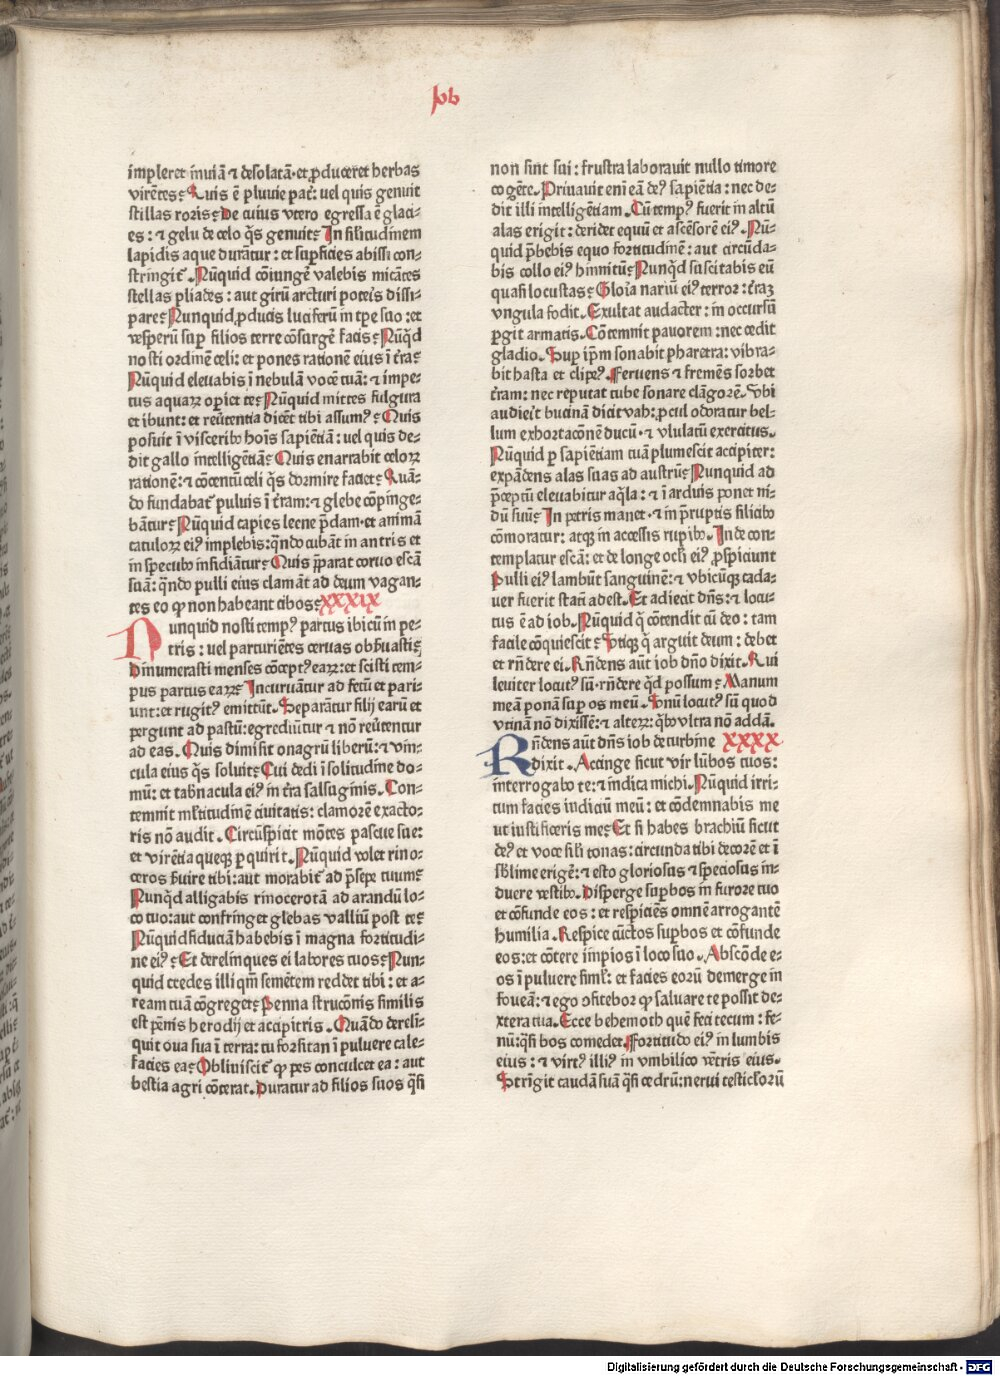 Job
impleret inuiā ⁊ desolatā·et ꝓduceret herbas
virētes? Quis ē pluuie pat̄: uel quis genuit
stillas roris? De cuius vtero egressa ē glaci-
es: ⁊ gelu de celo q̄s genuit? In similitudinem
lapidis aque durātur: et suꝑficies abissi con-
stringit̄. Nūquid cōiungē valebis micātes
stellas pliades: aut girū arcturi poteris dissi-
pare? Nunquid ꝓducis luciferū in tp̄e suo: et
vesperū suꝑ filios terre cōsurgē facis? Nūq̄d
nosti ordinē celi: et pones rationē eius ī t̄ra?
Nūquid eleuabis ī nebula vocē tuā: ⁊ impe-
tus aquaꝝ oꝑiet te? Nūquid mittes fulgura
et ibunt: et reūtentia dicēt tibi assumꝰ? Quis
posuit ī visceribꝰ hoīs sapiētiā: uel quis de-
dit gallo intelligētiā? Quis enarrabit celoꝝ
rationē: ⁊ cōcentū celi q̄s dormire faciet? Quā-
do fundabat̄ puluis ī t̄ram: ⁊ glebe cōpinge-
bātur? Nūquid capies leene p̄dam·et animā
catuloꝝ eiꝰ implebis: qn̄do cubāt in antris et
in specubꝰ insidiātur? Quis p̄parat coruo escā
suā: qn̄do pulli eius clamāt ad deum vagan-
tes eo ꝙ non habeant cibos? XXXIX
Nunquid nosti tempꝰ partus ibicū in pe-
tris: uel parturiētes ceruas obẜuasti?
Dinumerasti menses cōceptꝰ earꝝ: et scisti tem-
pus partus earꝝ? Incuruātur ad fetū et pari-
unt: et rugitꝰ emittūt. Separātur filij earū et
pergunt ad pastū: egrediūtur ⁊ nō reūtentur
ad eas. Quis dimisit onagrū liberū: ⁊ vin-
cula eius q̄s soluit? Cui dedi ī solitudine do-
mū: et tab̄nacula eiꝰ in t̄ra salsuginis. Con-
temnit mltitudinē ciuitatis: clamorē exacto-
ris nō audit. Circūspicit mōtes pascue sue:
et virētia queqꝫ ꝑquirit. Nūquid volet rino-
ceros ẜuire tibi: aut morabit̄ ad p̄sepe tuum?
Nunq̄d alligabis rinocerotā ad arandū lo-
ro tuo: aut confringet glebas valliū post te?
Nūquid fiduciā habebis ī magna fortitudi-
ne eiꝰ? Et derelinques ei labores tuos? Nun-
quid credes illi qm̄ semētem reddet tibi: et a-
ream tuā cōgreget? Penna strucōnis similis
est pēnis herodij et accipitris. Quādo dereli-
quit oua sua ī terra: tu forsitan ī puluere cale-
facies ea? Obliuiscit̄ ꝙ pes conculcet ea: aut
bestia agri cōterat. Duratur ad filios suos q̄si
non sint sui: frustra laborauit nullo timore
cogēte. Priuauit eni eā deꝰ sapiētia: nec de-
dit illi intelligētiam. Cū tempꝰ fuerit in altū
alas erigit: deridet equū et ascēsorē eiꝰ. Nū-
quid p̄bebis equo fortitudinē: aut circūda-
bis collo eiꝰ hinnitū? Nunq̄d suscitabis eū
quasi locustas? Gloīa nariū eiꝰ terror: t̄raꝫ
vngula fodit. Exultat audacter: in occursū
ꝑgit armatis. Cōtemnit pauorem: nec cedit
gladio. Suꝑ ip̄m sonabit pharetra: vibra-
bit hasta et clipeꝰ. Feruens ⁊ fremēs sorbet
t̄ram: nec reputat tube sonare clāgorē. Vbi
audiet̄ bucinā dicit vah: ꝓcul odoratur bel-
lum exhortacōnē ducū·⁊ vlulatū exercitus.
Nūquid ꝑ sapiētiam tuā plumescit accipiter:
expādens alas suas ad austrū? Nunquid ad
p̄ceptū eleuabitur aq̄la: ⁊ ī arduis ponet ni-
dū suū? In petris manet·⁊ in p̄ruptis silicibꝰ
cōmoratur: atqꝫ in accessis rupibꝰ. Inde con-
templatur escā: et de longe ocli eiꝰ ꝓspiciunt
Pulli eiꝰ lambūt sanguinē: ⁊ vbicūqꝫ cada-
uer fuerit stati adest. Et adiecit dn̄s: ⁊ locu-
tus ē ad iob. Nūquid q̄ cōtendit cū deo: tam
facile cōquiescit? Vtiqꝫ q̄ arguit deum: debet
et rn̄dere ei. Rn̄dens aūt iob dn̄o dixit. Qui
leuiter locutꝰ sū·rn̄dere q̄d possum? Manum
meā ponā suꝑ os meū. Vnū locutꝰ sū quod
vtinā nō dixissē: ⁊ alterꝫ: q̄bꝰ vltra nō addā.
Rn̄dens aūt dn̄s iob de turbine XXXX
dixit. Accinge sicut vir lūbos tuos:
interrogabo te: ⁊ indica michi. Nūquid irri-
tum facies iudiciū meū: et cōdemnabis me
ut iustificeris me? Et si habes brachiū sicut
deꝰ et voce sili tonas: circunda tibi decorē et ī
sblime erigē: ⁊ esto gloriosus ⁊ speciosus in-
duere vestibꝰ. Disperge suꝑbos in furore tuo
et cōfunde eos: et respiciēs omnē arrogantē
humilia. Respice cūctos suꝑbos et cōfunde
eos: et cōtere impios ī loco suo. Abscōde e-
os ī puluere siml: et facies eorū demerge in
foueā: ⁊ ego ꝯfitebor ꝙ saluare te possit de-
xtera tua. Ecce behemoth quē feci tecum: fe-
nū: q̄si bos comedet. Fortitudo eiꝰ in lumbis
eius: ⁊ virtꝰ illiꝰ in vmbilico vētris eius.
Stringit caudā suā q̄si cedrū: nerui testiculorū
Digitalisierung gefördert durch die Deutsche Forschungsgemeinschaft - DFG